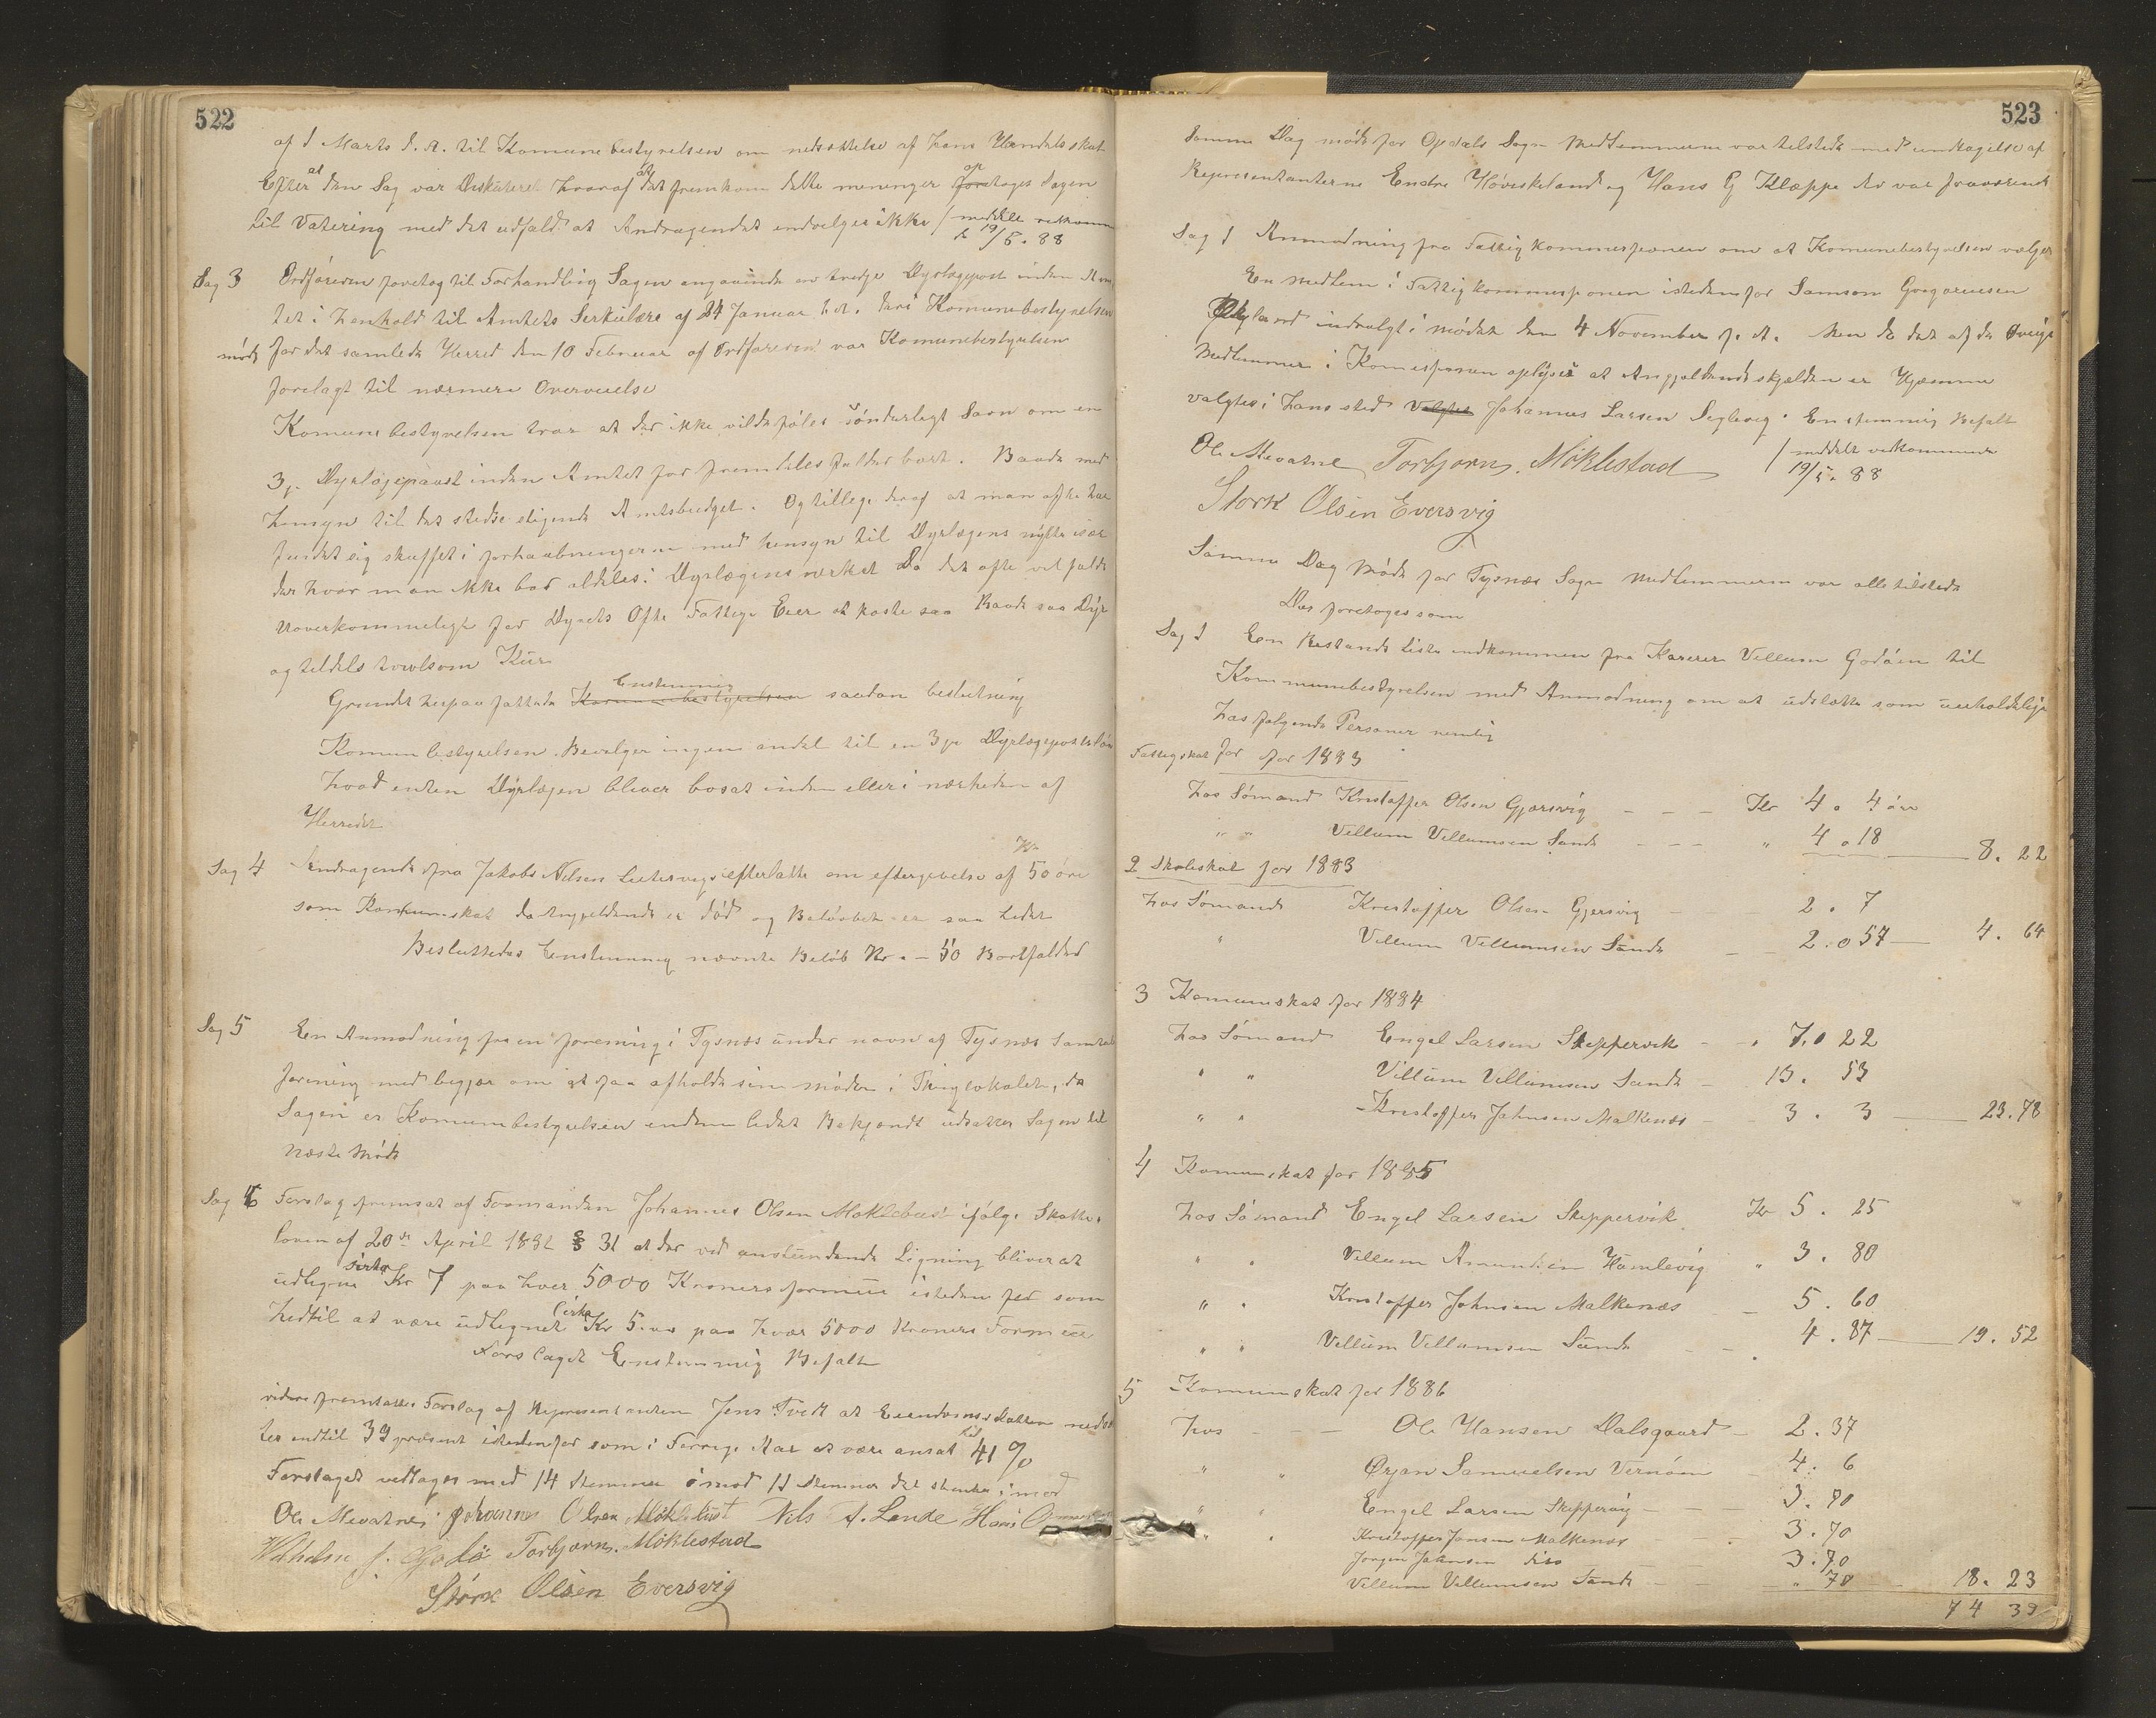 522
af 1 Marts d. A. til Komunebestyrelsen om nedsættelse af hans Handelsskat
Efter at den Sag var Diskuteret hvoraf at det fremkom delte meninger op foretoges Sagen
til Votering med det udfald at Andragendet indvelges ikke / meddelt vedkomm
d 19/5. 88
Sag 3 Ordføreren foretog til Forhandling Sagen angaaende en tredje Dyrlægepost inden Am
tet i henhold til Amtets Serkulære af 24 Januar d. A. der i Komunebestyrelsen
møde for det samlede Herred den 10 Februar af Ordføreren var Komunebestyrelsen
forelagt til nærmere Overveielse
Komunebestyrelsen tror at der ikke vilde føles sønderlegt Savn om en
3je Dyrlægepaast inden Amtet for fremdeles falder bort. Baade med
hensyn til det stedse stigende Amtsbudget. Og tillege deraf at man ofte har
fundet sig skuffet i forhaabningerne med hensyn til Dyrlægens nytte især
der hvor man ikke bor aldeles i Dyrlægens nærhet Da det ofte vil falde
Uoverkommeligt for Dyrets Ofte Fattige Eier at koste saa Baade saa Dyr
og tildels tvivlsom Kur
Grundet herpaa fattede Komunebestyrelsen Enstemmig saadan beslutning
Komunbestyrelsen Bevelger ingen andel til en 3je Dyrlægepostsløn
hvad enten Dyrlægen bliver bosat inden eller i nærheden af
Herredet
Sag 4 Andragende fra Jakob Nilsen Lutersvigs efterlatte om eftergivelse af Kr 50 øre
som Komunskat da Angjeldende er død og Beløbet er saa lidet
Besluttedes Enstemmig nævnte Beløb Kr. – 50 Bortfalder
Sag 5 En Anmodning fra en forening i Tysnæs under navn af Tysnæs Samtale
forening med begjær om at faa afholde sine møder i Thinglokalet, da
Sagen er Komunbestyrelsen endnu lidet Bekjendt udsættes Sagen til
næste Møde
Sag 6 Forslag fremsat af Formanden Johannes Olsen Møklebust ifølge Skatte-
loven af 20de April 1882 § 31 at der ved anstundende Ligning bliver at
udligne sirka Kr 7 paa hver 5000 Kroners formue isteden for som
hidtil at være udlignet Cirka Kr 5.00 paa hver 5000 Kroners Formue
Forslaget Enstemmig Befalt
videre fremsattes Forslag af Representanten Jens Tvedt at Eiendomsskatten nedsæt
tes indtil 39 prosent istedenfor som i Forrige Aar at være ansat til 41 %
Forslaget vedtages med 14 Stemmer imod 11 Stemmer det stemte imod
Ole Mevatne Johannes Olsen Møklebust Nils A. Lande Hans
Vilhelm J. Godø Torbjørn. Møklestad
Størk Olsen Eversvig
523
Samme Dag møde for Opdals Sogn Medlemmerne var tilstede med undtagelse af
Representanterne Endre Høviskeland og Hans G Kleppe der var fraværende
Sag 1 Anmodning fra Fattigkommesjonen om at Komunebestyrelsen vælger
En Medlem i Fattigkommesjonen istedenfor Samson Gregoriussen
indvalgt i mødet den 4 November f. A. Men da det af de Øvrige
Medlemmer i Komesjonen oplyses at Angjeldende skjelden er Hjemme
valgtes i hans sted Valgtes Johannes Larsen Seglevig. Enstemmig Befalt
Ole Mevatne Torbjørn. Møklestad / meddelt vedkommende
19/5. 88
Størk Olsen Eversvig
Samme Dag Møde for Tysnæs Sogn Medlemmerne var alle tilstede
Der foretoges som
Sag 1 Een Restance liste indkommen fra Kaserer Villum Godøen til
Kommunebestyrelsen med Anmodning om at udslette som uerholdelige
hos følgende Personer nemlig
Fattigskat for for 1883
hos Sømand Kristoffer Olsen Gjersvig – – – Kr 4. 4 øre
" " Villum Villumsen Sande – – – " 4. 18 8. 22
2 Skoleskat for 1883
hos Sømand Kristoffer Olsen Gjersvig – 2. 7
" Villum Villumsen Sande – – 2. 57 – 4. 64
3 Komunskat for 1884
hos Sømand Engel Larsen Skeppervik – 7. 22
" " Villum Villumsen Sande – 13. 53
" " Kristoffer Johnsen Malkenæs – 3. 3 – 23. 78
4 Komunskat for 1885
hos Sømand Engel Larsen Skeppervik Kr 5. 25
" " Villum Amundsen Humlevig " 3. 80
" " Kristoffer Johnsen Malkenæs – 5. 60
" " Villum Villumsen Sande – 4. 87 – 19. 52
5 Komunskat for 1886
Hos – – – Ole Hansen Dalsgaard – 2. 37
" " Ørjan Samuelsen Vernøen – 4. 6
" " Engel Larsen Skeppervig – – – 3. 70
" " Kristoffer Jonsen Malkenæs – 3. 70
Jørgen Johnsen dito – – 3. 70
Villum Villumsen Sande – – " 70 18. 23
74 39